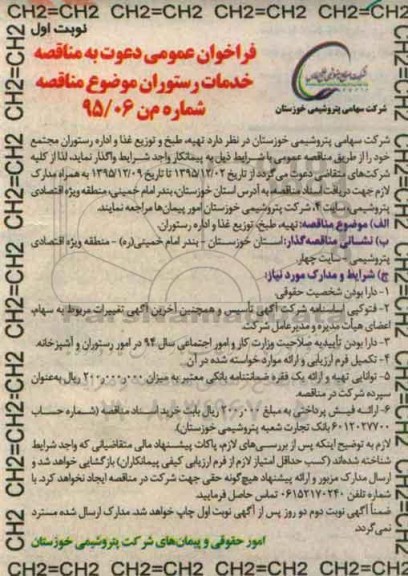 CH2=CH2 CH2=CH2 CH2=CH2 CH2=CH2 CH2=CH2
نوبت اول
فراخوان عمومی دعوت به مناقصه
خدمات رستوران موضوع مناقصه
شماره من ۹۵/۰۶
شرکت سهامی پتروشیمی خوزستان
شرکت سهامی پتروشیمی خوزستان در نظر دارد تهیه، طبخ و توزیع غذا و اداره رستوران مجتمع
خود را از طریق مناقصه عمومی با شرایط ذیل به پیمانکار واجد شرایط واگذار نماید، لذا از کلیه
شرکت‌های متقاضی دعوت می گردد از تاریخ ۱۳۹۵/۱۲/۰۲ تا تاریخ ۱۳۹۵/۱۲/۰۹ به همراه مدارک
لازم جهت دریافت اسناد مناقصه، به آدرس استان خوزستان، بندر امام خمینی، منطقه ویژه اقتصادی
پتروشیمی، سایت ۴، شرکت پتروشیمی خوزستان امور پیمان‌ها مراجعه نمایند.
الف) موضوع مناقصه: تهیه، طبخ، توزیع غذا و اداره رستوران.
ب) نشانی مناقصه‌گذار: استان خوزستان - بندر امام خمینی(ره) - منطقه ویژه اقتصادی
پتروشیمی - سایت چهار.
ج) شرایط و مدارک مورد نیاز:
۱- دارا بودن شخصیت حقوقی.
۲- فتوکپی اساسنامه شرکت آگهی تأسیس و همچنین آخرین آگهی تغییرات مربوط به سهام،
اعضای هیأت مدیره و مدیرعامل شرکت.
۳- دارا بودن تأییدیه صلاحیت وزارت کار و امور اجتماعی سال ۹۴ در امور رستوران و آشپزخانه.
۴- تکمیل فرم ارزیابی و ارائه موارد خواسته شده در آن.
۵- توانایی تهیه و ارائه یک فقره ضمانتنامه بانکی معتبر به میزان ۲۰۰٫۰۰۰٫۰۰۰ ریال به‌عنوان
سپرده شرکت در مناقصه.
۶- ارائه فیش پرداختی به مبلغ ۲۰۰٫۰۰۰ ریال بابت خرید اسناد مناقصه (شماره حساب
۶۰۱۲۰۲۷۷۰۰ بانک تجارت شعبه پتروشیمی خوزستان).
لازم به توضیح اینکه پس از بررسی‌های لازم، پاکات پیشنهاد مالی متقاضیانی که واجد شرایط
شناخته شده‌اند (کسب حداقل امتیاز لازم از فرم ارزیابی کیفی پیمانکاران) بازگشایی خواهد شد و
ارسال مدارک مزبور و ارائه پیشنهاد هیچ‌گونه حقی جهت شرکت در مناقصه ایجاد نخواهد کرد. با
شماره تلفن ۰۶۱۵۲۱۷۰۲۴۰ تماس حاصل فرمایید.
ضمناً آگهی نوبت دوم دو روز پس از آگهی نوبت اول چاپ خواهد شد. مدارک ارسال شده مسترد
نمی‌گردد.
امور حقوقی و پیمان‌های شرکت پتروشیمی خوزستان
CH2=CH2 CH2=CH2 CH2=CH2 CH2=CH2 CH2=CH2